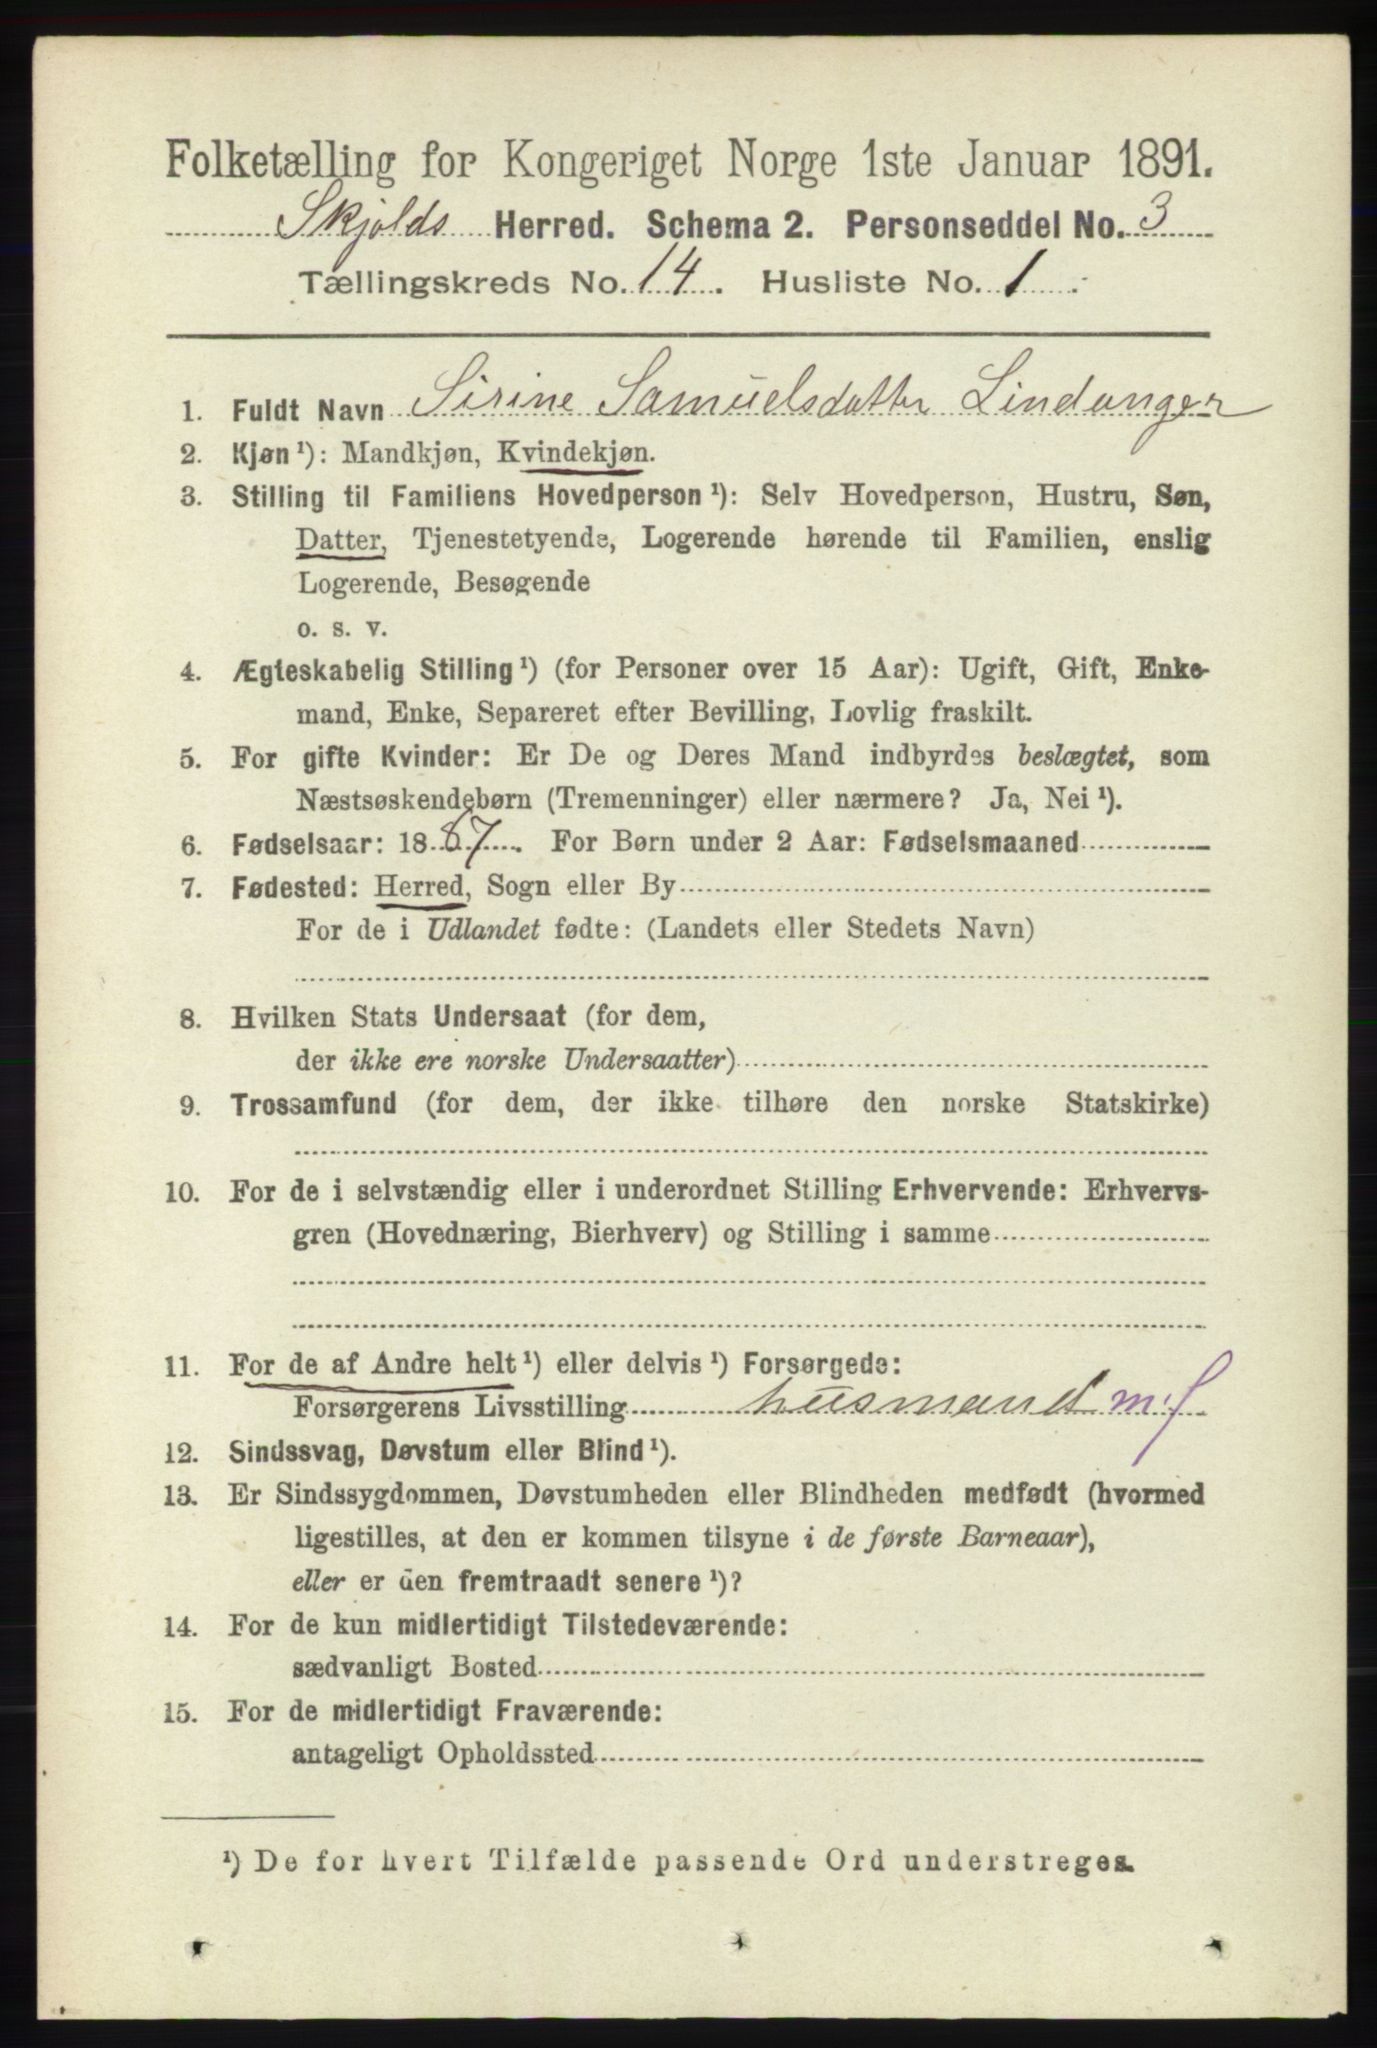 Folketælling for Kongeriget Norge 1ste Januar 1891.
Skjolds Herred. Schema 2. Personseddel No. 3
Tællingskreds No. 14. Husliste No. 1.
1. Fuldt Navn Sirine Samuelsdatter Lindanger
2. Kjøn¹): Mandkjøn, Kvindekjøn.
3. Stilling til Familiens Hovedperson¹): Selv Hovedperson, Hustru, Søn,
Datter, Tjenestetyende, Logerende hørende til Familien, enslig
Logerende, Besøgende
o. s. v.
4. Ægteskabelig Stilling¹) (for Personer over 15 Aar): Ugift, Gift, Enke-
mand, Enke, Separeret efter Bevilling, Lovlig fraskilt.
5. For gifte Kvinder: Er De og Deres Mand indbyrdes beslægtet, som
Næstsøskendebørn (Tremenninger) eller nærmere? Ja, Nei¹).
6. Fødselsaar: 1887. For Børn under 2 Aar: Fødselsmaaned
7. Fødested: Herred, Sogn eller By
For de i Udlandet fødte: (Landets eller Stedets Navn)
8. Hvilken Stats Undersaat (for dem,
der ikke ere norske Undersaatter)
9. Trossamfund (for dem, der ikke tilhøre den norske Statskirke)
10. For de i selvstændig eller i underordnet Stilling Erhvervende: Erhvervs-
gren (Hovednæring, Bierhverv) og Stilling i samme
11. For de af Andre helt¹) eller delvis¹) Forsørgede:
Forsørgerens Livsstilling husmand m.j
12. Sindssvag, Døvstum eller Blind¹).
13. Er Sindssygdommen, Døvstumheden eller Blindheden medfødt (hvormed
ligestilles, at den er kommen tilsyne i de første Barneaar),
eller er den fremtraadt senere¹)?
14. For de kun midlertidigt Tilstedeværende:
sædvanligt Bosted
15. For de midlertidigt Fraværende:
antageligt Opholdssted
¹) De for hvert Tilfælde passende Ord understreges.